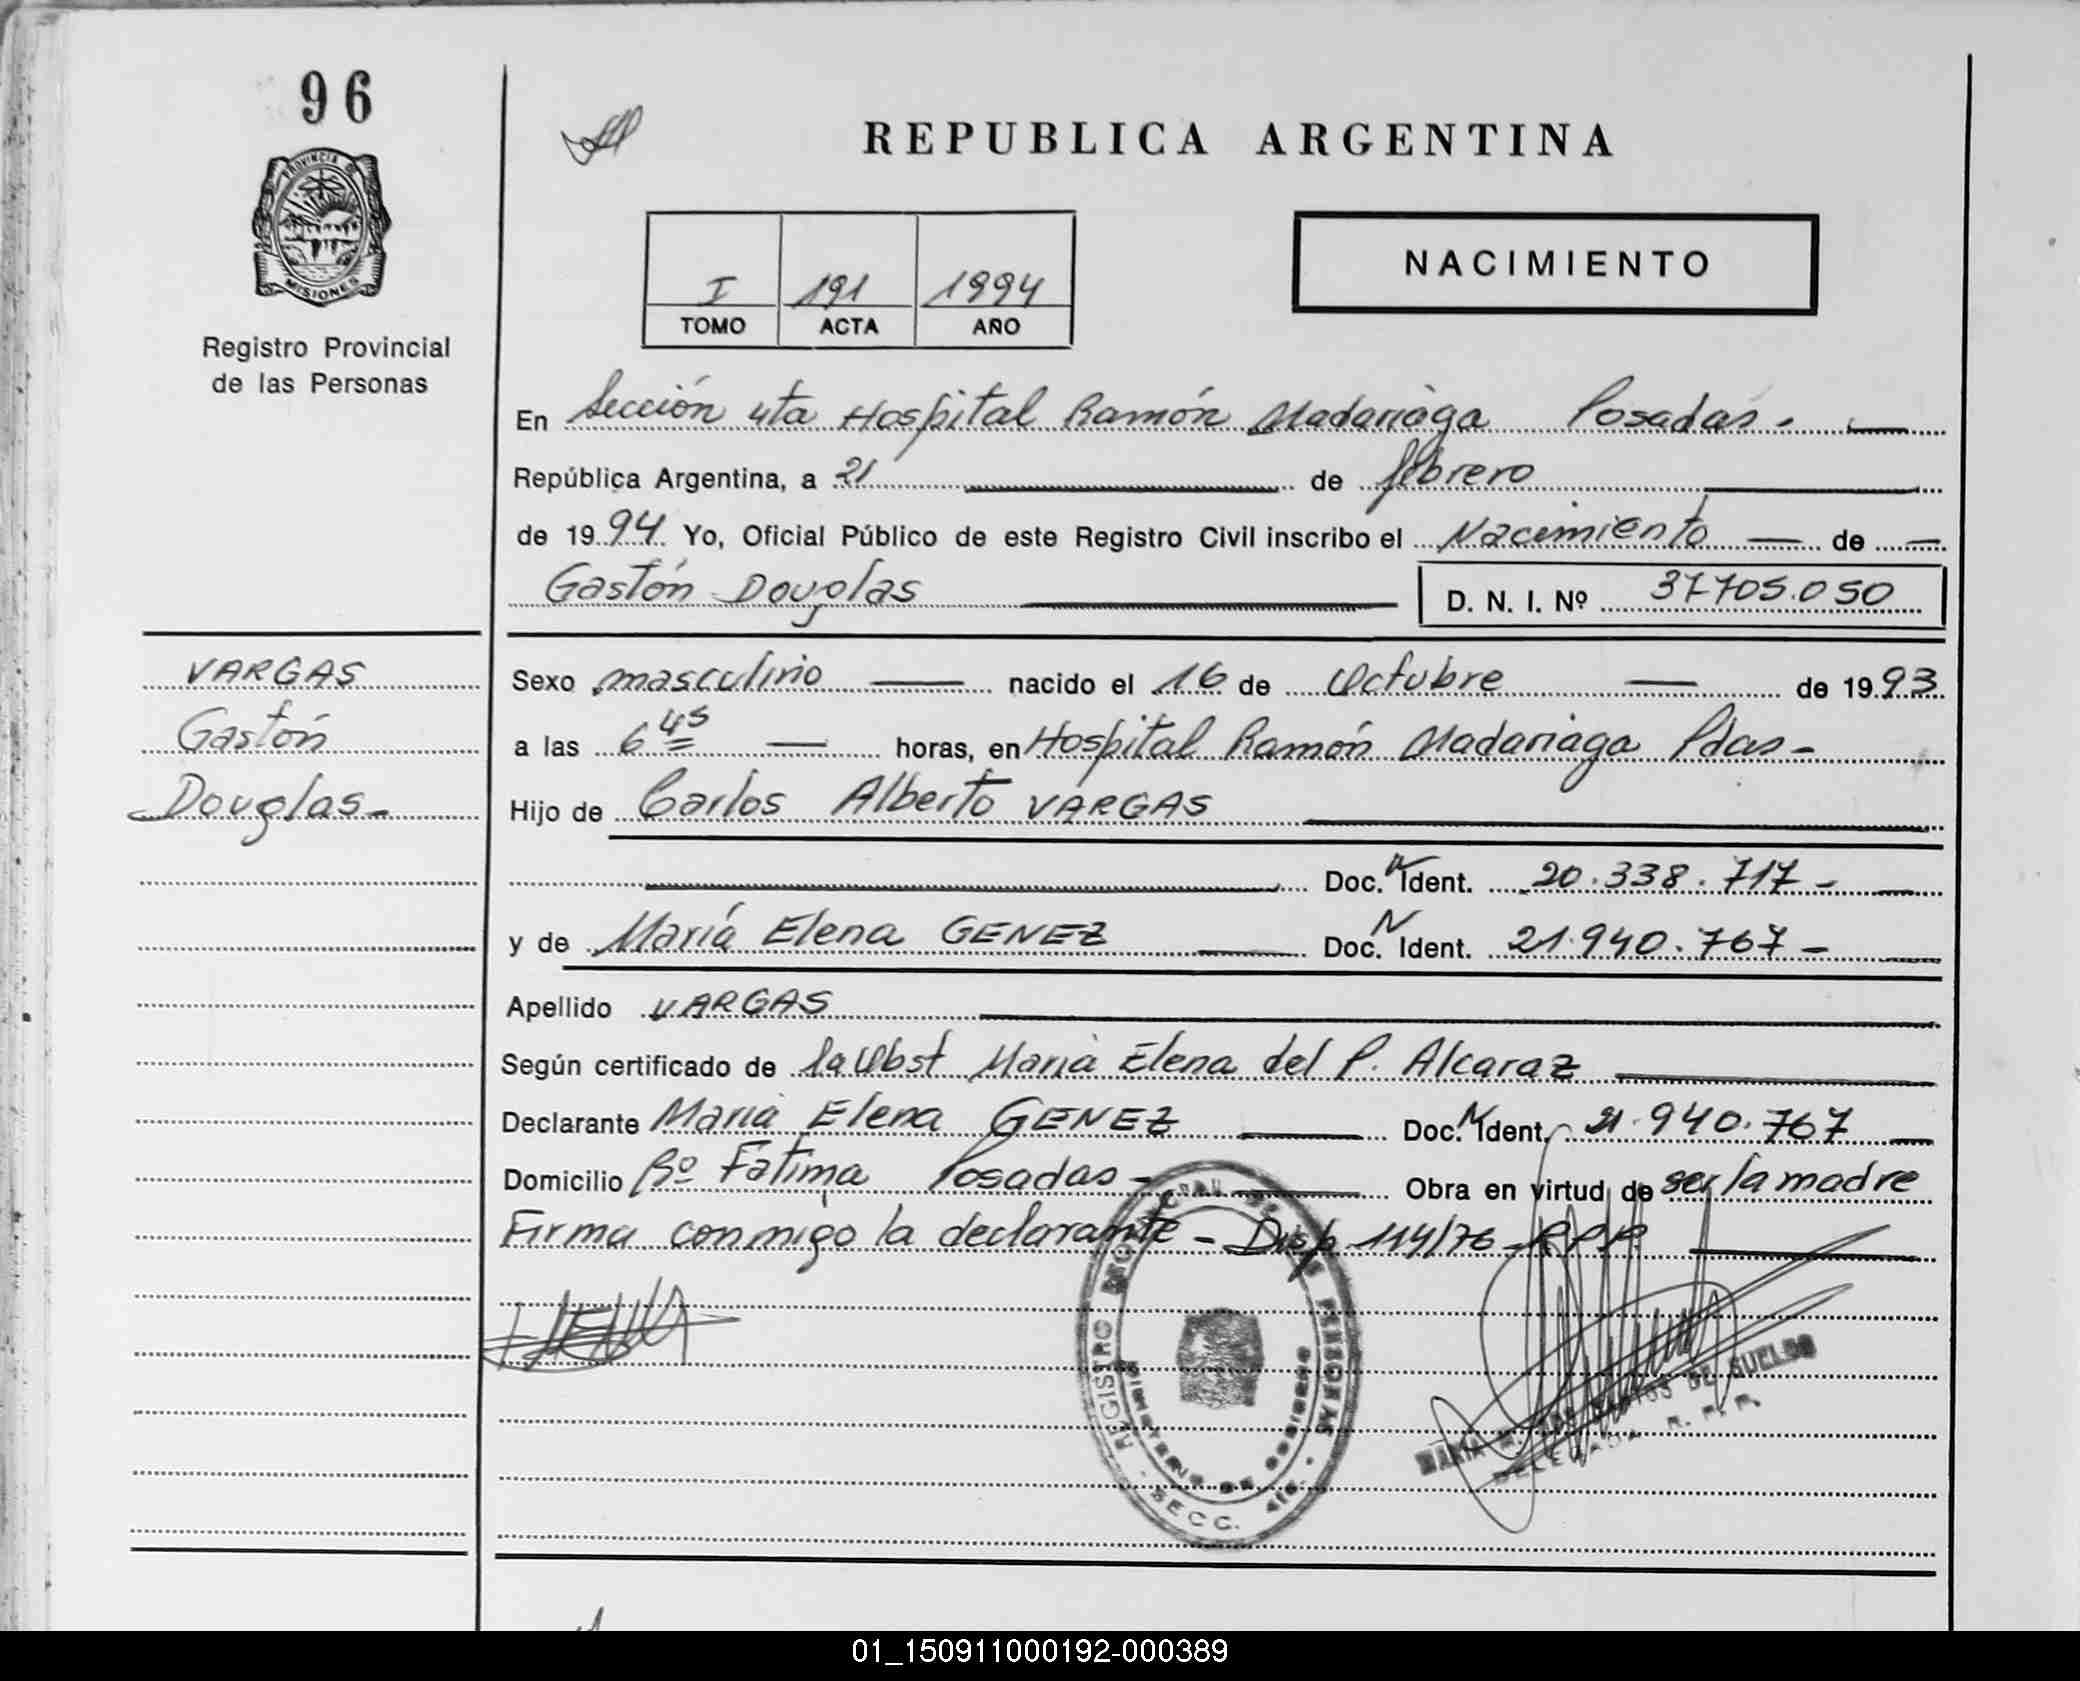 96
PROVINCIA DE
MISIONES
Registro Provincial
de las Personas
REPUBLICA ARGENTINA
I 191 1994
TOMO ACTA AÑO
NACIMIENTO
En Sección 4ta Hospital Ramón Madariaga Posadas.
República Argentina, a 21 de febrero
de 1994 Yo, Oficial Público de este Registro Civil inscribo el Nacimiento de
Gastón Douglas D. N. I. Nº 37.705.050
VARGAS
Gastón
Douglas-
Sexo masculino nacido el 16 de Octubre de 1993
a las 6 45 horas, en Hospital Ramón Madariaga Pdas-
Hijo de Carlos Alberto VARGAS
Doc. N Ident. 20.338.717-
y de María Elena GENEZ Doc. N Ident. 21.940.767-
Apellido VARGAS
Según certificado de la Obst María Elena del P. Alcaraz
Declarante María Elena GENEZ Doc. N Ident. 21.940.767
Domicilio Bº Fátima Posadas- Obra en virtud de ser la madre
Firma conmigo la declarante - Disp 114/76 RPP
REGISTRO PROVINCIAL DE LAS PERSONAS
MINISTERIO DE GOBIERNO
SECC. 4ta.
MARIA DE SUELDO
DELEGADA R. P. P.
01_150911000192-000389